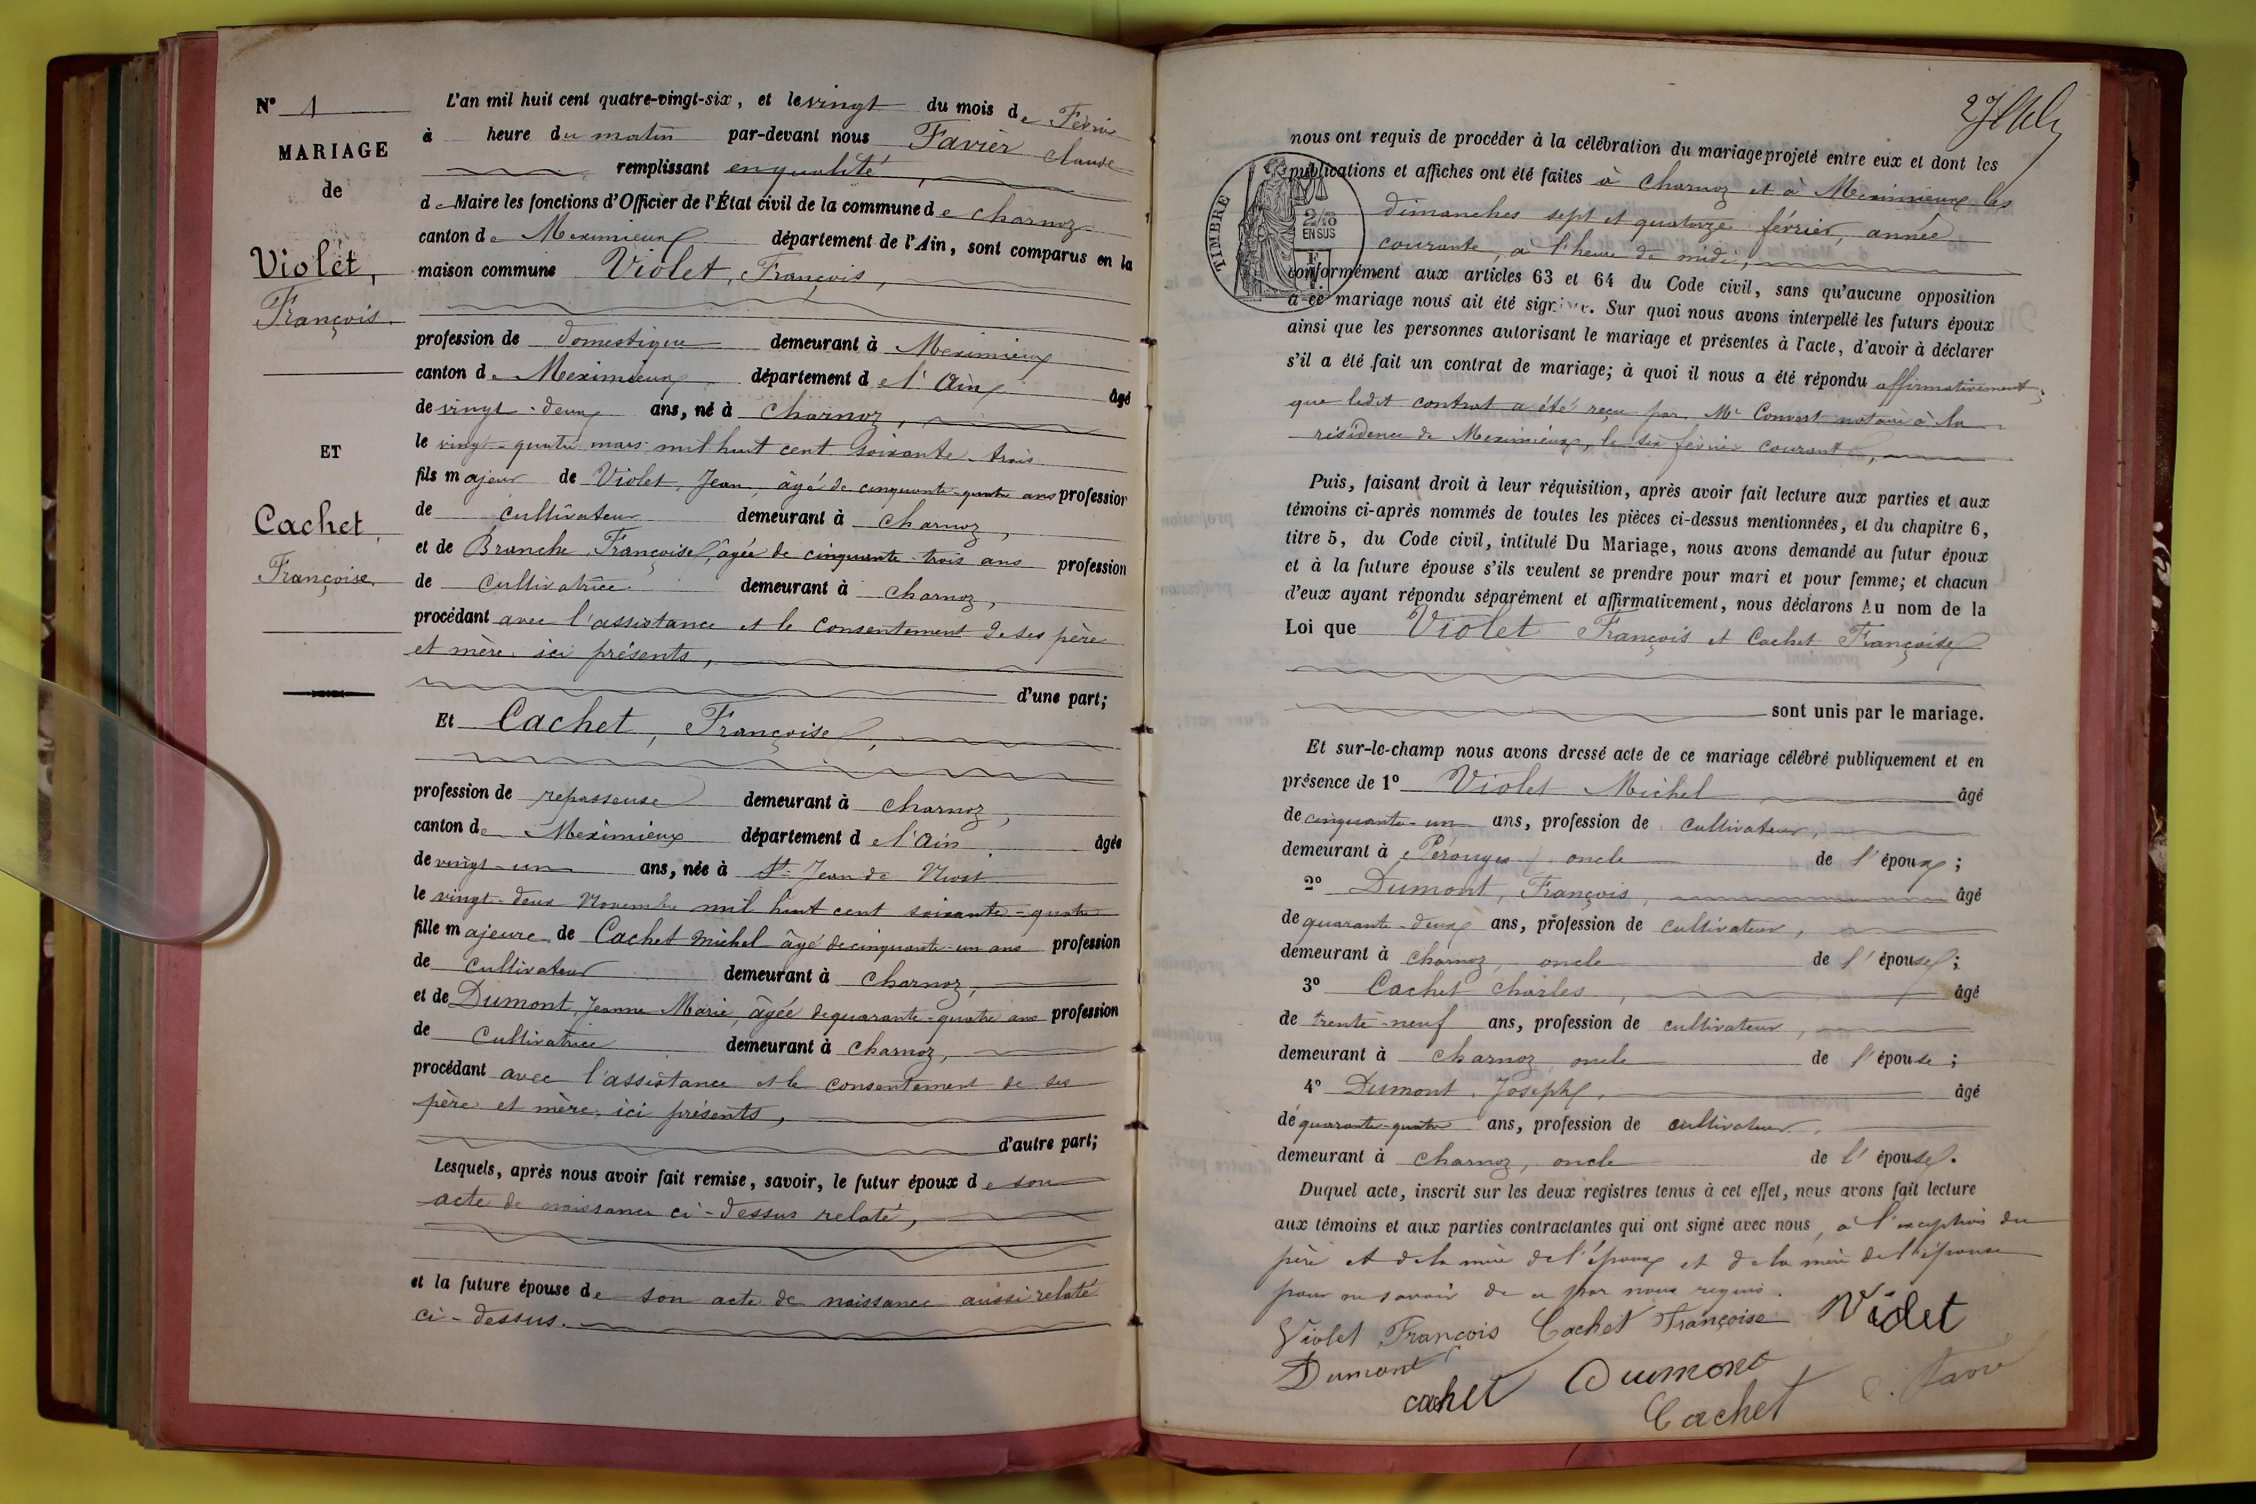 N° 1
MARIAGE
de
Violet,
François.
ET
Cachet,
Françoise.
L'an mil huit cent quatre-vingt-six, et le vingt du mois de Février
à heure du matin par-devant nous Favier Claude
remplissant en qualité
de Maire les fonctions d'Officier de l'État civil de la commune de Charnoz
canton de Meximieux département de l'Ain, sont comparus en la
maison commune Violet, François,
profession de domestique demeurant à Meximieux
canton de Meximieux département de l'Ain âgé
de vingt-deux ans, né à Charnoz,
le vingt-quatre mars mil huit cent soixante-trois
fils majeur de Violet, Jean, âgé de cinquante-quatre ans profession
de cultivateur demeurant à Charnoz,
et de Branche Françoise, âgée de cinquante-trois ans profession
de cultivatrice demeurant à Charnoz,
procédant avec l'assistance et le consentement de ses père
et mère ici présents,
d'une part;
Et Cachet, Françoise,
profession de repasseuse demeurant à Charnoz,
canton de Meximieux département de l'Ain âgée
de vingt-un ans, née à St Jean de Niost
le vingt-deux Novembre mil huit cent soixante-quatre
fille majeure de Cachet Michel âgé de cinquante-un ans profession
de cultivateur demeurant à Charnoz,
et de Dumont, Jeanne Marie, âgée de quarante-quatre ans profession
de cultivatrice demeurant à Charnoz,
procédant avec l'assistance et le consentement de ses
père et mère ici présents,
d'autre part;
Lesquels, après nous avoir fait remise, savoir, le futur époux de son
acte de naissance ci-dessus relaté,
et la future épouse de son acte de naissance aussi relaté
ci-dessus.
nous ont requis de procéder à la célébration du mariage projeté entre eux et dont les
publications et affiches ont été faites à Charnoz et à Meximieux les
dimanches sept et quatorze février, année
courante, à l'heure de midi,
TIMBRE
2/10
EN SUS
conformément aux articles 63 et 64 du Code civil, sans qu'aucune opposition
à ce mariage nous ait été signifiée. Sur quoi nous avons interpellé les futurs époux
ainsi que les personnes autorisant le mariage et présentes à l'acte, d'avoir à déclarer
s'il a été fait un contrat de mariage; à quoi il nous a été répondu affirmativement;
que ledit contrat a été reçu par Me Convert notaire à la
résidence de Meximieux, le six février courant,
Puis, faisant droit à leur réquisition, après avoir fait lecture aux parties et aux
témoins ci-après nommés de toutes les pièces ci-dessus mentionnées, et du chapitre 6,
titre 5, du Code civil, intitulé Du Mariage, nous avons demandé au futur époux
et à la future épouse s'ils veulent se prendre pour mari et pour femme; et chacun
d'eux ayant répondu séparément et affirmativement, nous déclarons Au nom de la
Loi que Violet François et Cachet Françoise
sont unis par le mariage.
Et sur-le-champ nous avons dressé acte de ce mariage célébré publiquement et en
présence de 1° Violet Michel âgé
de cinquante-un ans, profession de cultivateur,
demeurant à Pérouges, oncle de l'époux;
2° Dumont, François, âgé
de quarante-deux ans, profession de cultivateur,
demeurant à Charnoz, oncle de l'épouse;
3° Cachet Charles, âgé
de trente-neuf ans, profession de cultivateur,
demeurant à Charnoz, oncle de l'épouse;
4° Dumont, Joseph, âgé
de quarante-quatre ans, profession de cultivateur,
demeurant à Charnoz, oncle de l'épouse.
Duquel acte, inscrit sur les deux registres tenus à cet effet, nous avons fait lecture
aux témoins et aux parties contractantes qui ont signé avec nous, à l'exception du
père et de la mère de l'époux et de la mère de l'épouse
pour ne savoir de ce par nous requis.
Violet François Cachet Françoise Violet
Dumont cachet Dumont Cachet